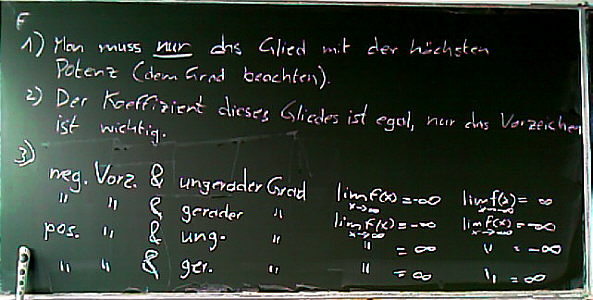 F
1) Man muss nur das Glied mit der höchsten
Potenz (dem Grad beachten).
2) Der Koeffizient dieses Gliedes ist egal, nur das Vorzeichen
ist wichtig.
3)
neg. Vorz. & ungerader Grad lim f(x) = -∞ lim f(x) = ∞
x→∞ x→-∞
" " & gerader " lim f(x) = -∞ lim f(x) = -∞
x→∞ x→-∞
pos. " & ung. " " = ∞ " = -∞
" " & ger. " " = ∞ " = ∞